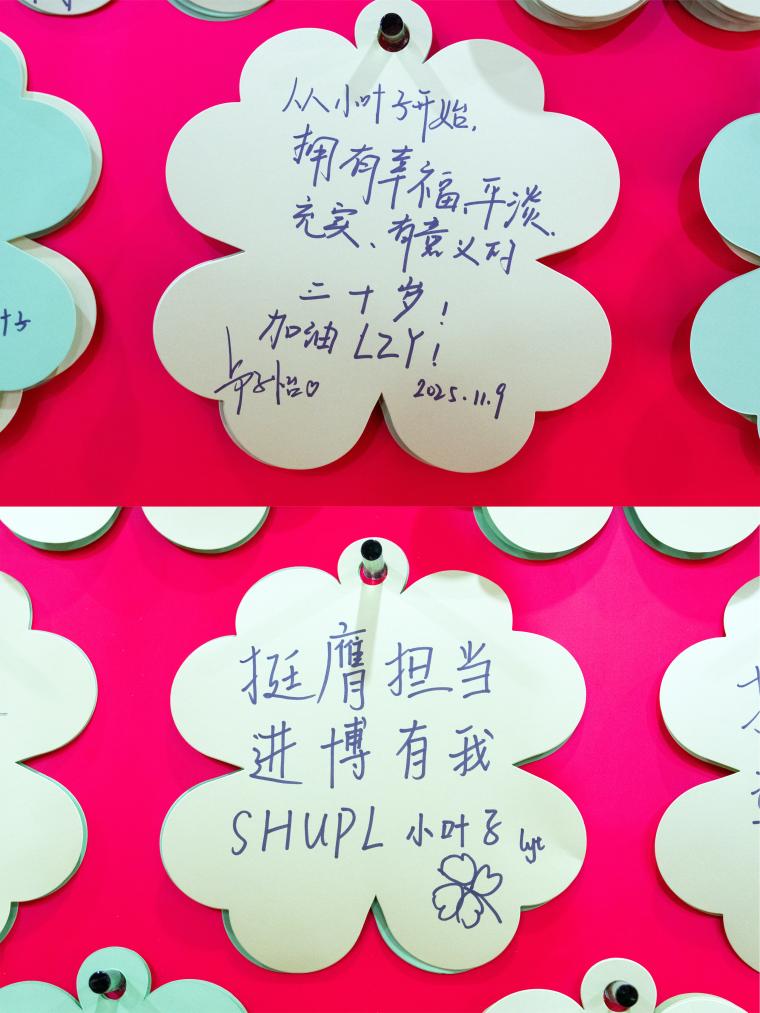 从小叶子开始,
拥有幸福、平淡、
充实、有意义的
三十岁!
加油 LZY!
2025.11.9
挺膺担当
进博有我
SHUPL 小叶子
lyt